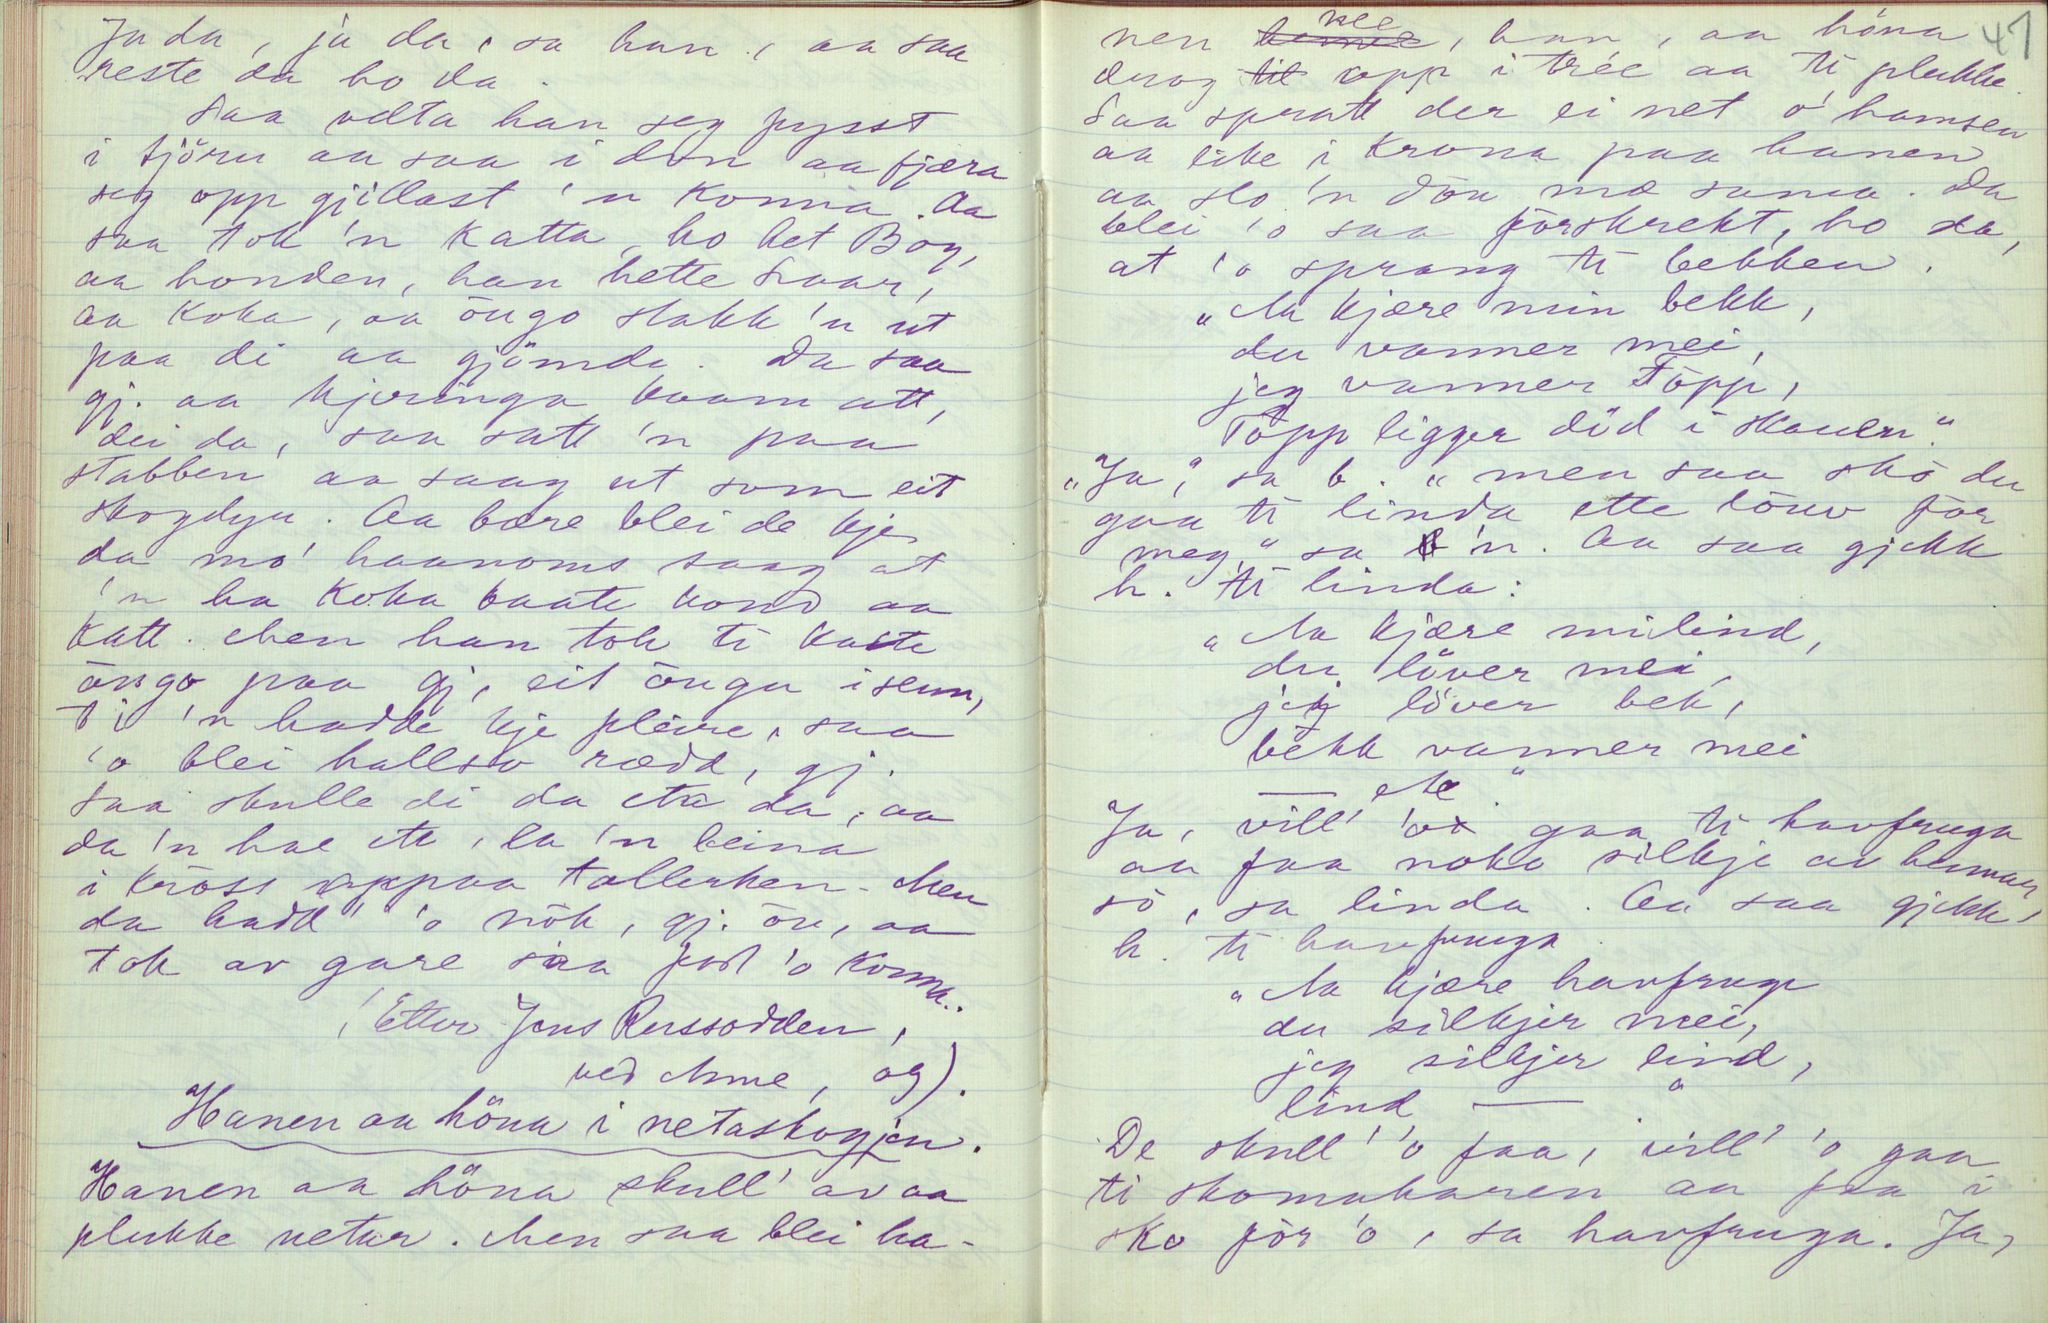 Ja da, ja da, sa han, aa saa
reste da ho da.
Saa velta han seg fysst
i tjöru aa saa i dun aa fjæra
seg opp gjillast 'n konna. Aa
saa tok 'n katta, ho het Bog,
aa honden, han hette Svar,
aa koka, aa öugo stakk 'n ut
paa di aa gjömde. Da saa
gj. aa kjeringa kaam att,
dei da, saa satt 'n paa
stabben aa saag ut som eit
skogdyr. Aa bære blei de kje
da mö haanoms saag at
'n ha koka baate hond aa
katt. Men han tok ti kaste
öugo paa gj, eit öugu i senn,
ti 'n hadde kje pleire, saa
'o blei hallso rædd, gj.
Saa skulle di da eta da, aa
da 'n hae ett, la 'n beina
i kröss oppaa tallerken. Men
da hadd' 'o nök, gj. öu, aa
tok av gare saa fort 'o konna.
(Etter Jens Russodden,
ved Anne, og).
Hanen aa höna i netaskogjen.
Hanen aa höna skull' av aa
plukke netar. Men saa blei ha-
47
nen nee, han, aa höna
drog opp i trée aa ti plukke.
Saa spratt der ei net o' hamsen
aa like i krona paa hanen
aa slo 'n döu mæ sama. Da
blei 'o saa förskrekt, ho da,
at 'o sprang ti bekken.
„Aa kjære min bekk,
du vanner mei,
jeg vanner Töpp,
Töpp ligger död i skauen."
„Ja," sa b. „men saa skö du
gaa ti linda ette löuv för
meg," sa 'n. Aa saa gjekk
h. ti linda:
„Aa kjære mi lind,
du löver mei,
jeg löver bek,
bekk vanner mei
— etc."
Ja, vill' 'o gaa ti havfruga
aa faa noko silkje av henner
sö, sa linda. Aa saa gjekk
h. ti havfruga
„Aa kjære havfruge
du silkjer mei,
jeg silkjer lind,
lind — "
De skull' 'o faa, vill' 'o gaa
ti skomakaren aa faa i
sko för 'o, sa havfruga. Ja,